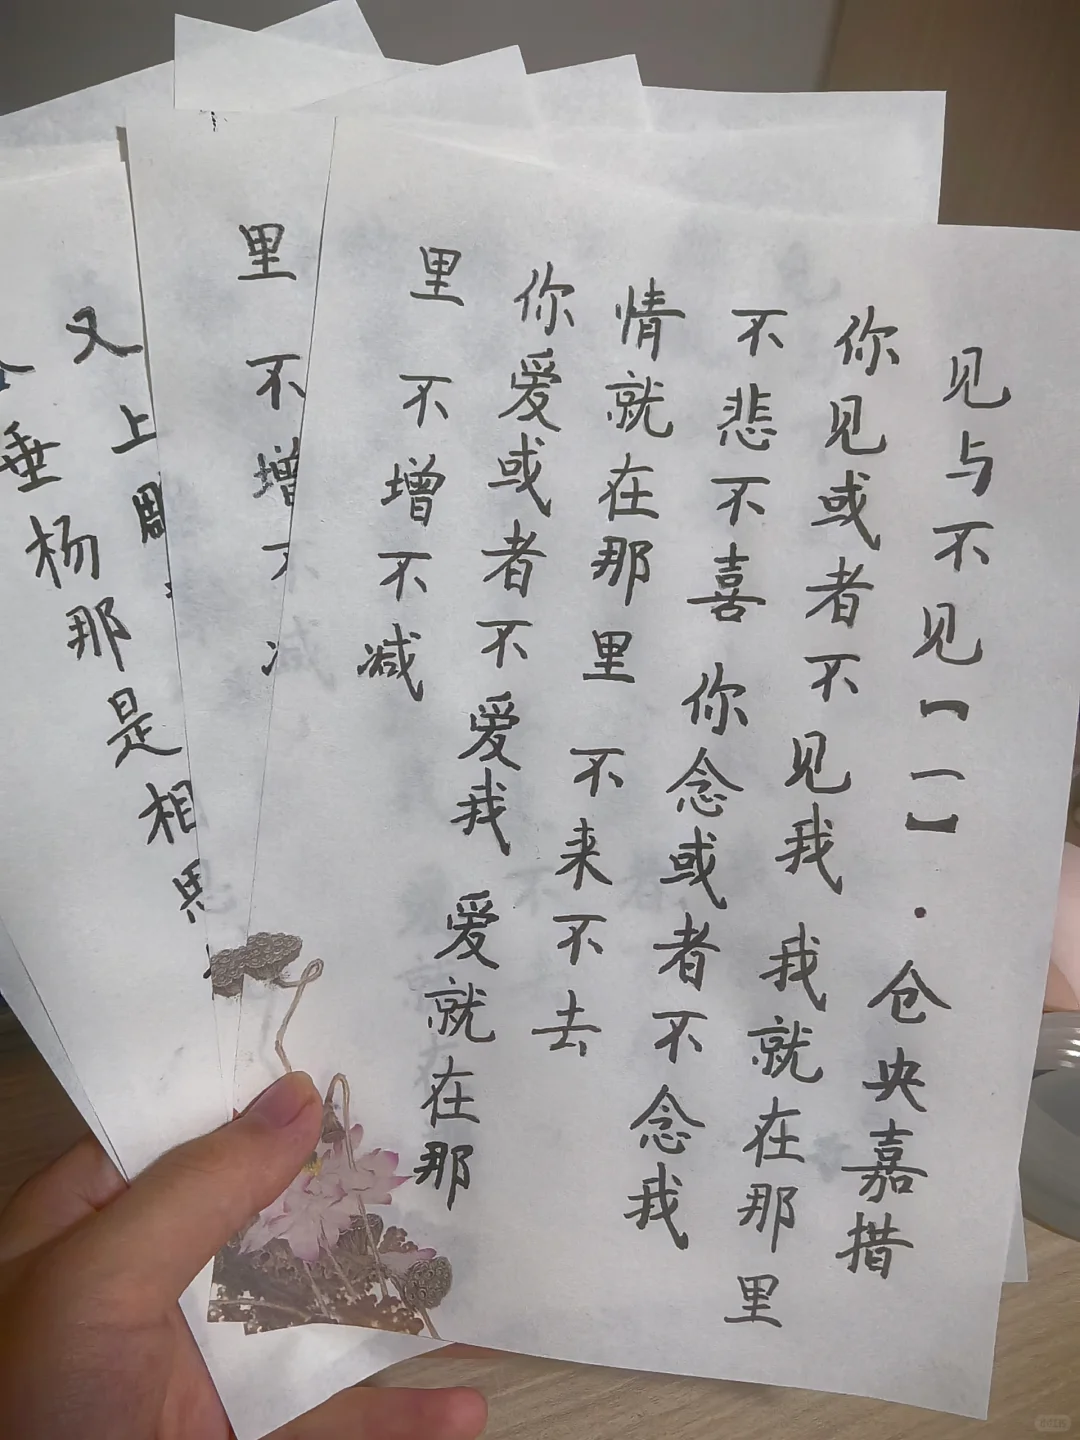 见与不见【一】·仓央嘉措
你见或者不见我 我就在那里
不悲不喜 你念或者不念我
情就在那里 不来不去
你爱或者不爱我 爱就在那
里 不增不减
里 不增不
又上
垂杨那是相思